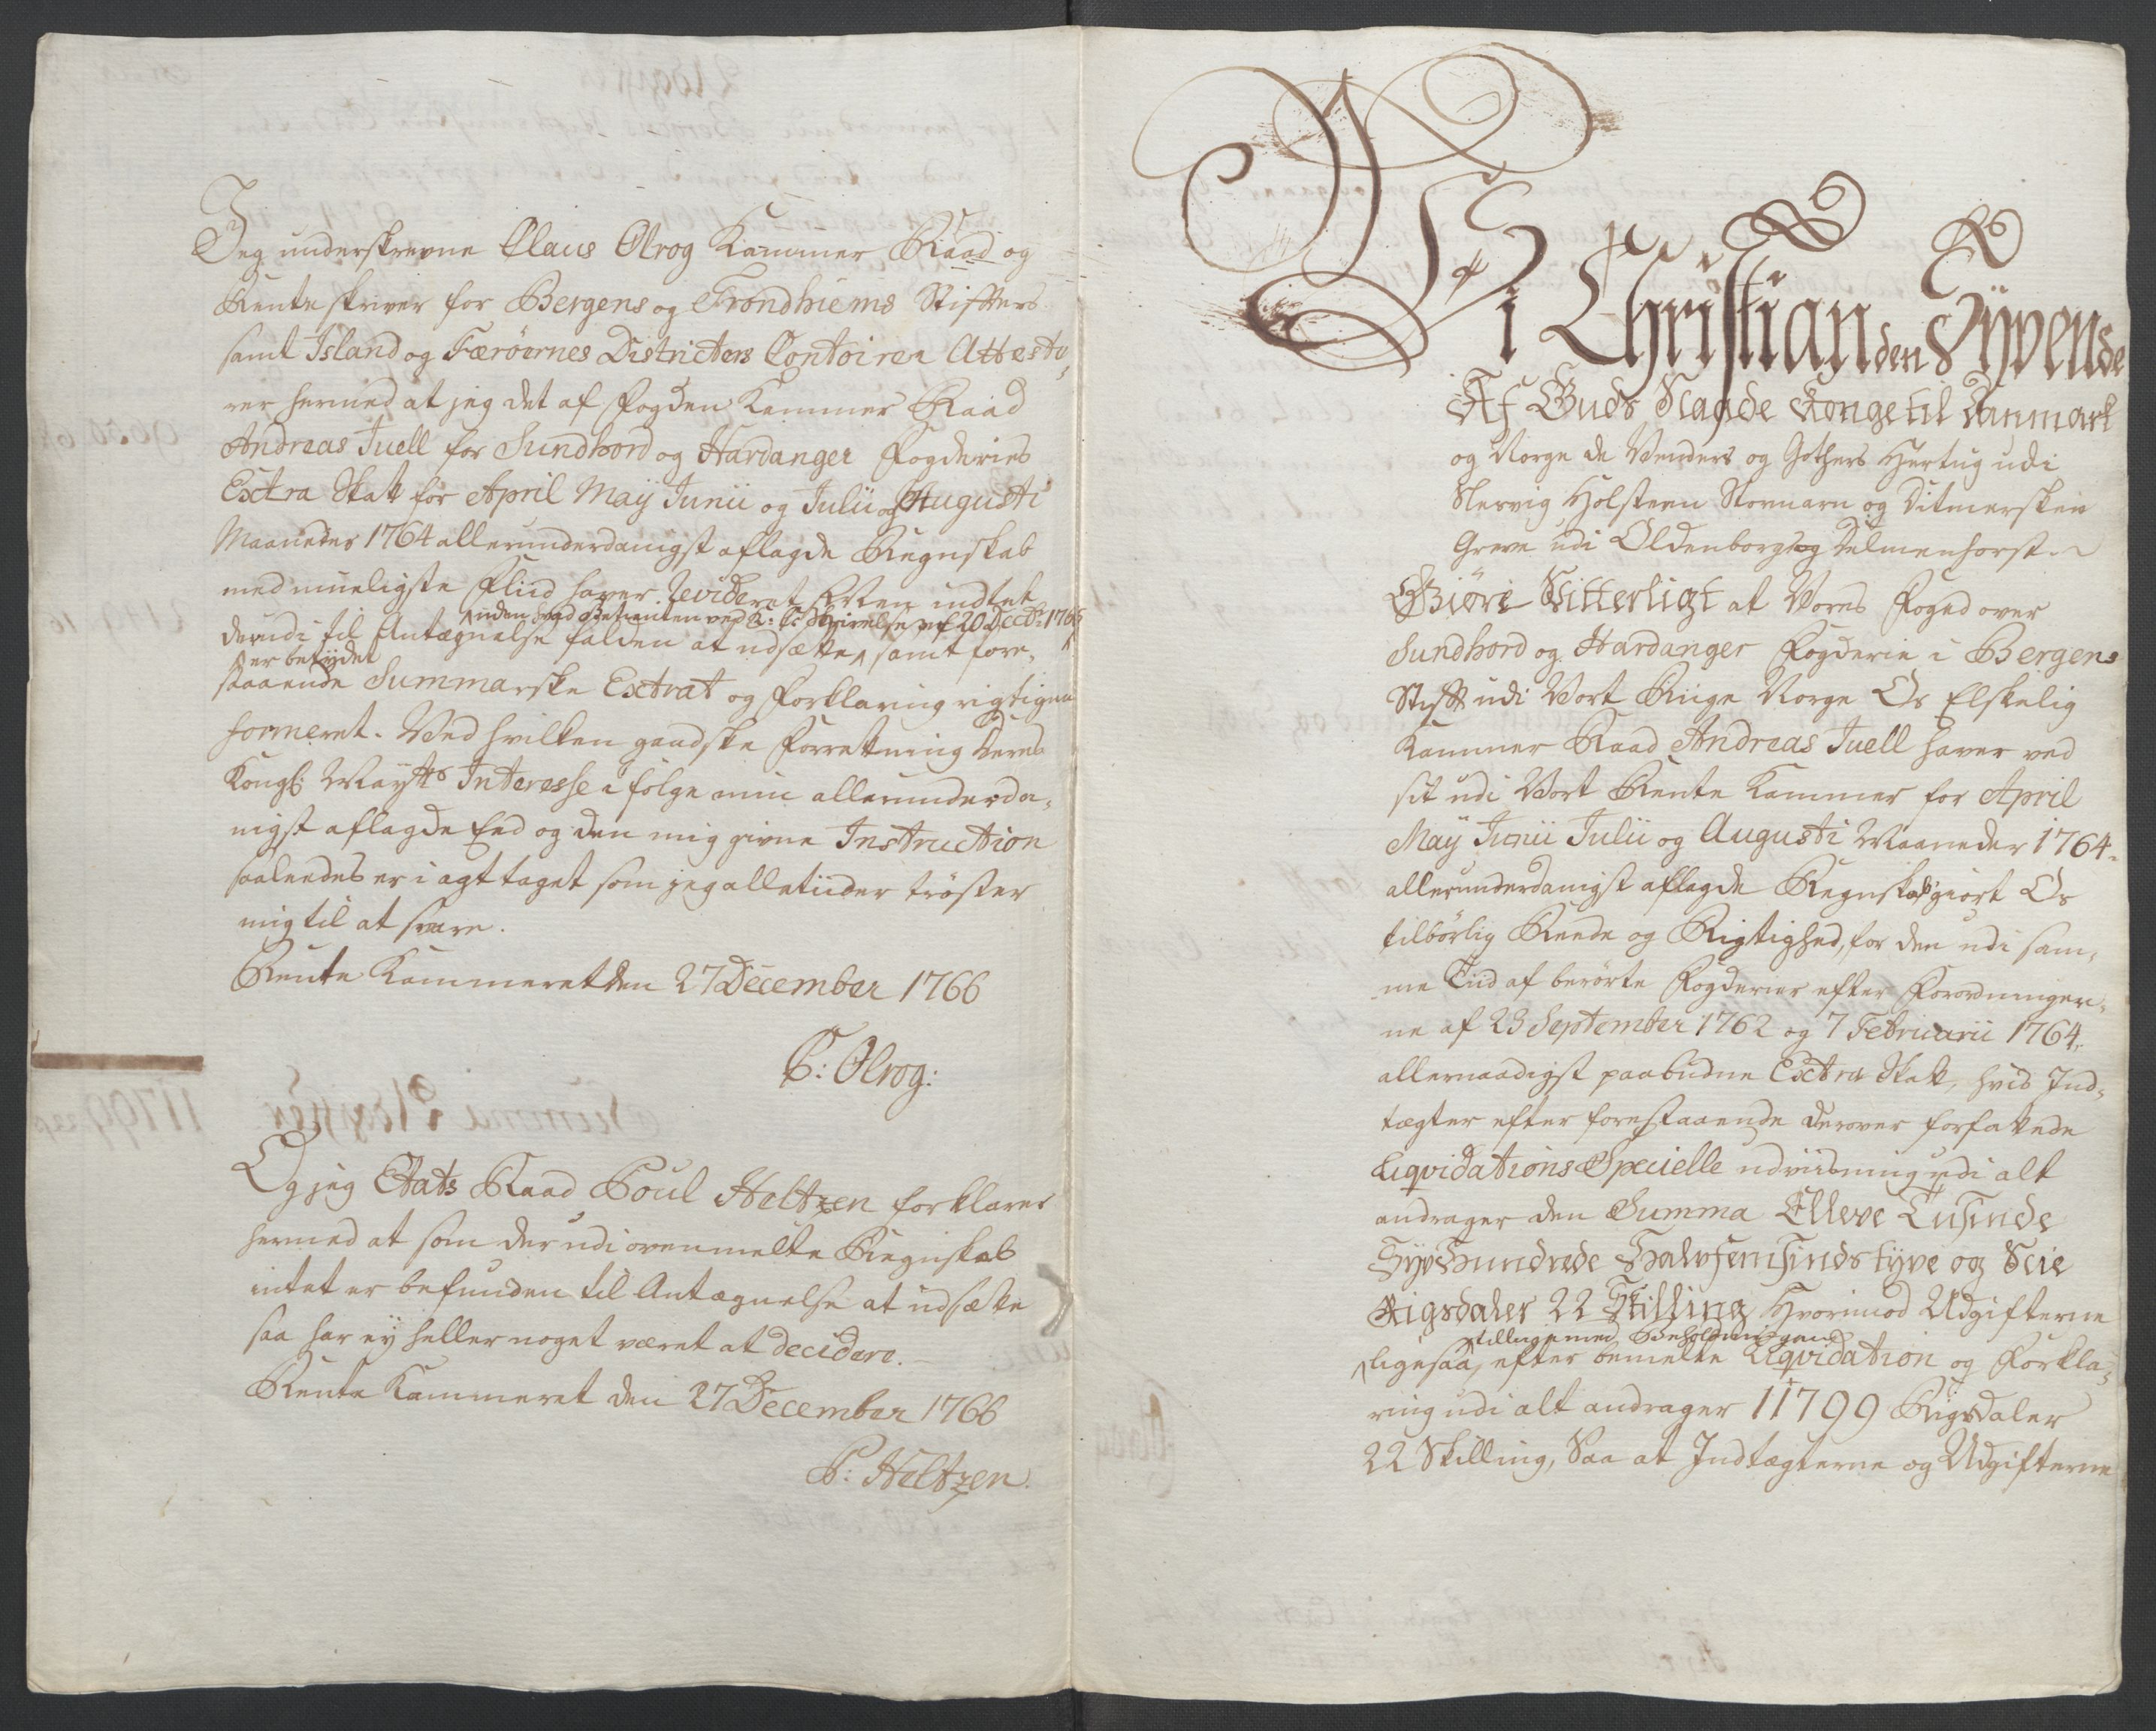 Jeg underskrevne Claus Olrog Kammer Raad og
Renteskriver for Bergens og Trondhiems Stifters
samt Island og Færöernes Districters Contoirer Atteste,
rer hermed at jeg det af Fogden Kammer Raad
Andreas Juell for Sundhord og Hardanger Fogderies
Extra Skatt for April Maÿ Junii og Julii og Augusti
Maaneder 1764 allerunderdanigst aflagde Regnskab
med mueligste Fliid haver Revideret Men indtet
uden hvad Betienten ved R: C: Skrivelse af 20 Decbr: 1766
derudi til Antægnelse falden at udsætte, samt fore,
er betydet
staaende Summarske Extrat og Forklaring rigtigen
formeret. Ved hvilken gandske Forretning Deres
Kongl: Maÿtts Interesse i fölge min allerunderda,
nigst aflagde Eed og den mig givne Instruction
saaleedes er i agt taget som jeg alletiider tröster
mig til at svare.
Rente Kammeret den 27 December 1766
C: Olrog:
Og jeg Etats Raad Poul Heltzen forklarer
hermed at som derudi ovenmelte Regnskab
intet er befunden til Antægnelse at udsætte
saa har ey heller noget været at decidere.
Rente Kammeret den 27 December 1766
P: Heltzen.
Vi Christian den Syvende
Af Guds Naade Konge til Danmark
og Norge de Venders og Gothers Hertug udi
Slesvig Holsteen Stormarn og Ditmersken
Greve udi Oldenborg og Delmenhorst
Giöre Vitterligt at Vores Foged over
Sundhord og Hardanger Fogderie i Bergens
Stift udi Vort Riige Norge Os Elskelig
Kammer Raad Andreas Juell haver ved
sit udi Vort Rente Kammer for April
Maÿ Junii Julii og Augusti Maaneder 1764
allerunderdanigst aflagde Regnskab giort Os
tilbörlig Reede og Rigtighed, for den udi sam,
me Tiid af berörte Fogderier efter Forordninger,
ne af 23 September 1762 og 7 Februarii 1764
allernaadigst paabudne Extra Skatt, hvis Ind,
tægter efter forestaaende derover forfattede
Liqvidations Specielle udviisning udi alt
andrager den Summa Elleve Tusinde
Syv Hundrede Halvfemsindstyve og Nie
Rigsdaler 22 Skilling Hvorimod Udgifterne
tilligemed Beholdningen
ligesaa, efter bemelte Liqvidation og Forkla,
ring udi alt andrager 11799 Rigsdaler
22 Skilling, Saa at Indtægterne og Udgifterne